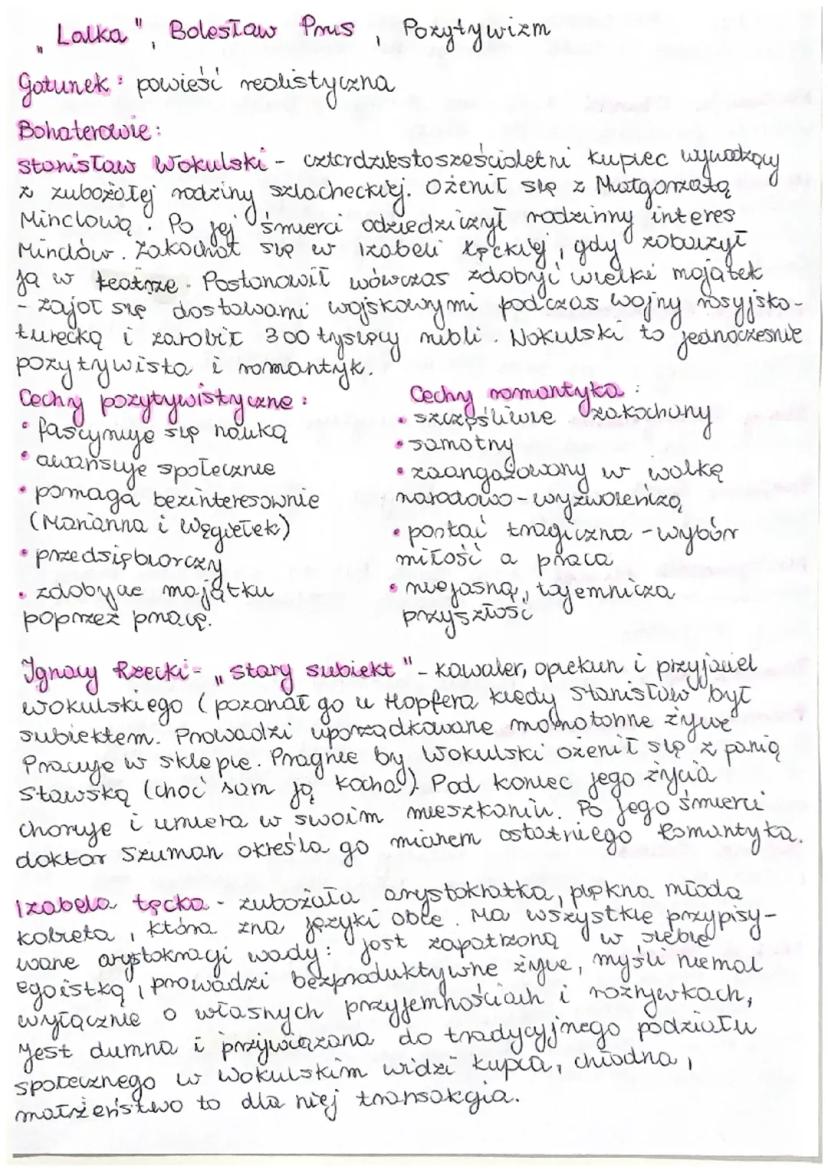 „Lalka", Bolesław Prus, Pozytywizm
Gatunek: powieść realistyczna
Bohaterowie:
Stanisław Wokulski - czterdziestosześcioletni kupiec wywodzący
z zubożałej rodziny szlacheckiej. Ożenił się z Małgorzatą
Minclową. Po jej śmierci odziedziczył rodzinny interes
Minclów. Zakochał się w Izabeli Łęckiej, gdy zobaczył
ją w teatrze. Postanowił wówczas zdobyć wielki majątek
- zajął się dostawami wojskowymi podczas wojny rosyjsko-
turecką i zarobił 300 tysięcy rubli. Wokulski to jednocześnie
pozytywista i romantyk.
Cechy pozytywistyczne:
• fascynuje się nauką
• awansuje społecznie
• pomaga bezinteresownie
(Marianna i Węgiełek)
• przedsiębiorczy
• zdobycie majątku
poprzez pracę.
Cechy romantyka:
• szczęśliwie zakochany
• samotny
• zaangażowany w walkę
narodowo-wyzwoleńczą
• postać tragiczna - wybór
miłość a praca
• niejasna, tajemnicza
przyszłość
Ignacy Rzecki - „stary subiekt" - kawaler, opiekun i przyjaciel
Wokulskiego (pozanał go u Hopfera kiedy Stanisław był
subiektem. Prowadzi uporządkowane momotonne życie
Pracuje w sklepie. Pragnie by Wokulski ożenił się z panią
Stawską (choć sam ją kocha). Pod koniec jego życia
choruje i umiera w swoim mieszkaniu. Po jego śmierci
doktor Szuman określa go mianem ostatniego romantyka.
Izabela Łęcka - zubożała arystokratka, piękna młoda
kobieta, która zna języki obce. Ma wszystkie przypisy-
wane arystokracji wady: jest zapatrzoną w siebie
egoistką, prowadzi bezproduktywne życie, myśli niemal
wyłącznie o własnych przyjemnościach i rozrywkach,
jest dumna i przywiązana do tradycyjnego podziału
społecznego w Wokulskim widzi kupca, chłodna,
małżeństwo to dla niej transakcja.